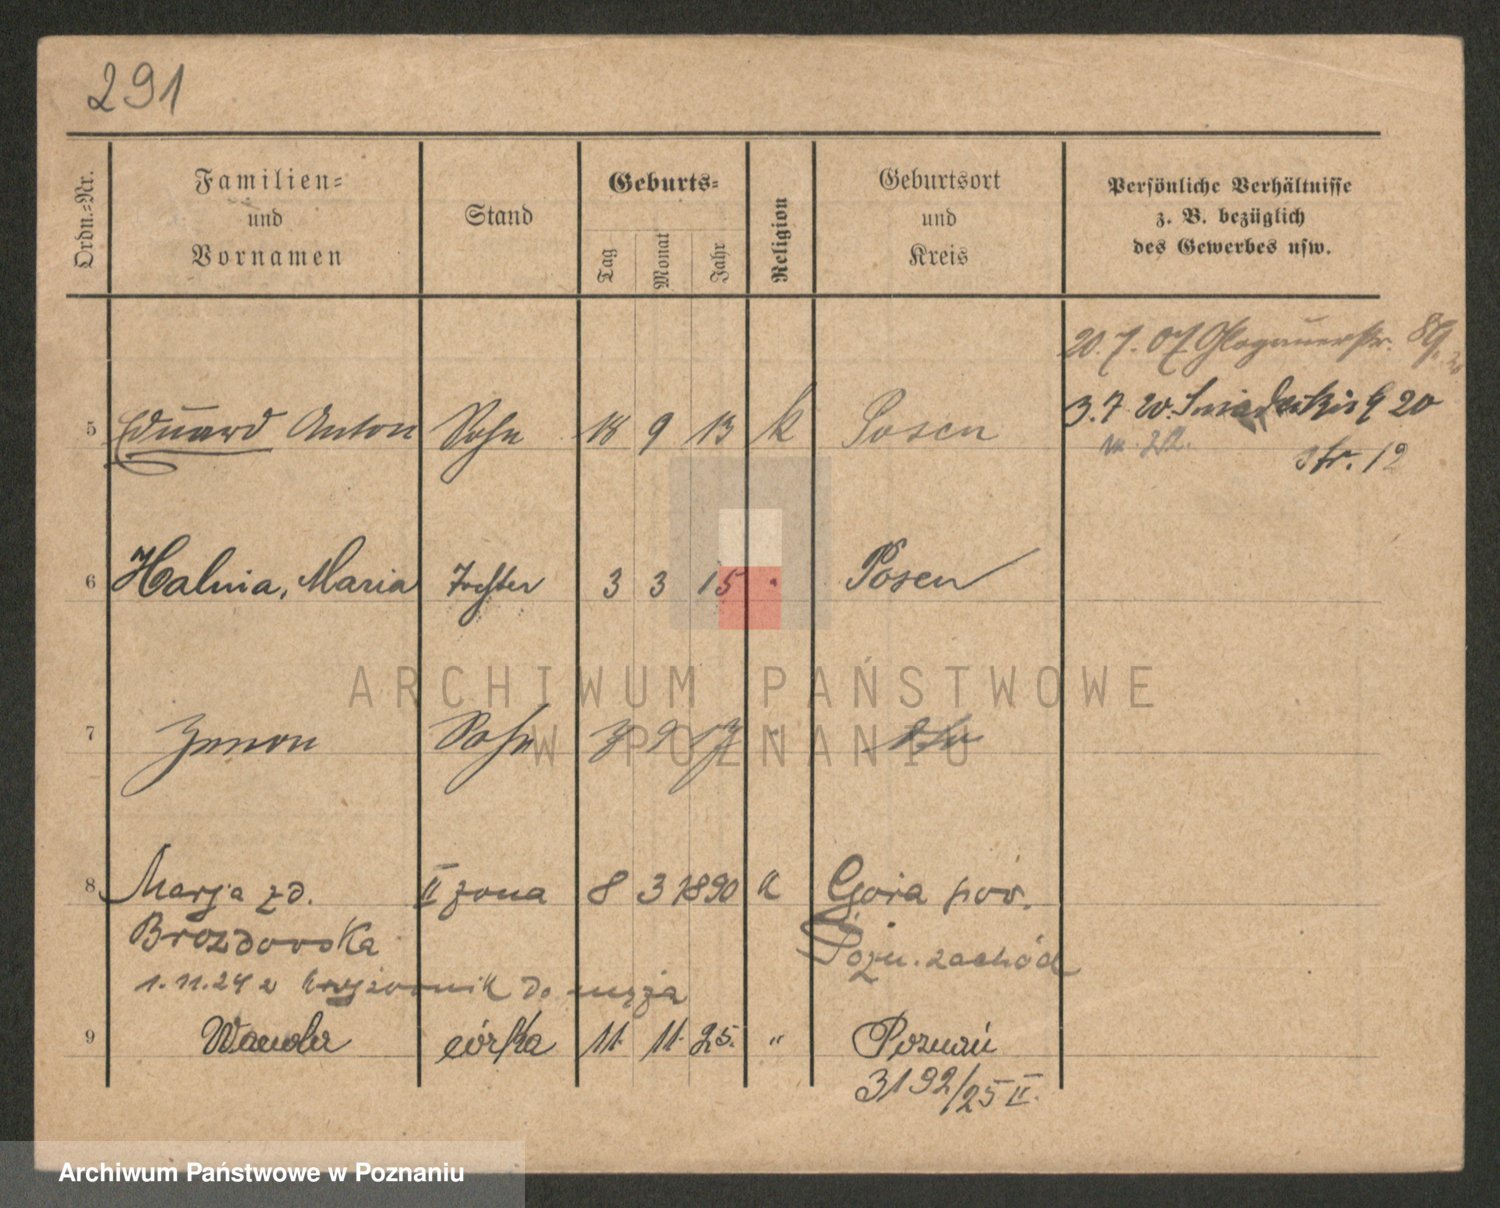 291
Ordn.-Nr.
Familien-
und
Vornamen
Stand
Geburts-
Tag
Monat
Jahr
Religion
Geburtsort
und
Kreis
Persönliche Verhältnisse
z. B. bezüglich
des Gewerbes usw.
20. 7. 07 Glogauerstr. 89
3.7 20
str. 12
5 Eduard Anton Sohn 18 9 13 k Posen
6 Halina, Maria Tochter 3 3 15 " Posen
7 Zenon Sohn 9 17 "
8 Marja zd. II żona 8 3 1890 k Góra pow.
Brozdowska Pozn. zachód
1.11.24 z do męża
9 Wanda córka 11. 11. 25. " Poznań
3192/25 II.
ARCHIWUM PAŃSTWOWE
W POZNANIU
Archiwum Państwowe w Poznaniu